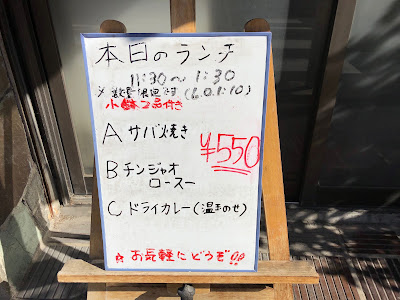 本日のランチ
11:30〜1:30
※数量限定付(L.O.1:10)
小鉢2品付き
A サバ焼き
¥550
B チンジャオ
ロースー
C ドライカレー(温玉のせ)
☆お気軽にどうぞ!!